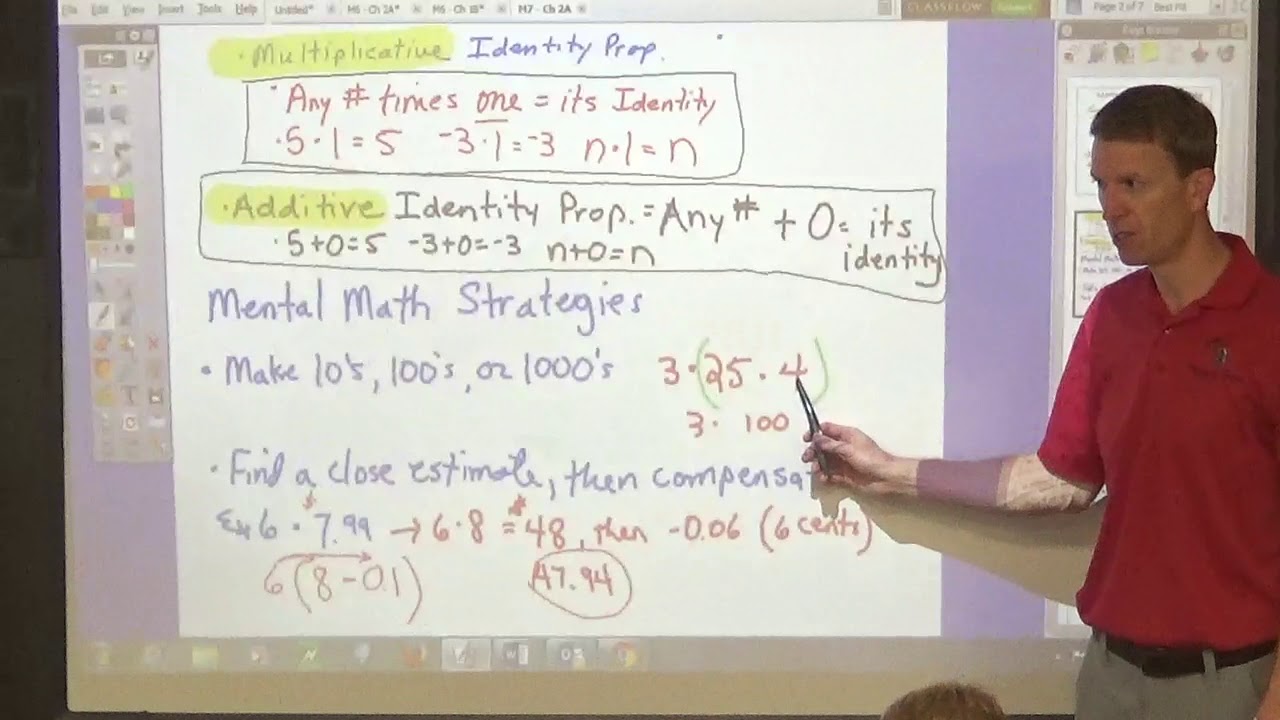 Edit View Insert Tools Help Untitled* M6 - Ch 2A* M6 Ch 1B* M7 - Ch 2A
CLASSFLOW
Page 2 of 7 Best Fit
• Multiplicative Identity Prop.
• Any # times one = its Identity
• 5 • 1 = 5 -3 • 1 = -3 n • 1 = n
• Additive Identity Prop. = Any # + 0 = its
identity
• 5+0=5 -3+0=-3 n+0=n
Mental Math Strategies
• Make 10's, 100's, or 1000's 3 • (25 • 4)
3 • 100
• Find a close estimate, then compensat
Ex 6 • $7.99 → 6 • 8 = $48, then -0.06 (6 cents)
6(8-0.1) 47.94